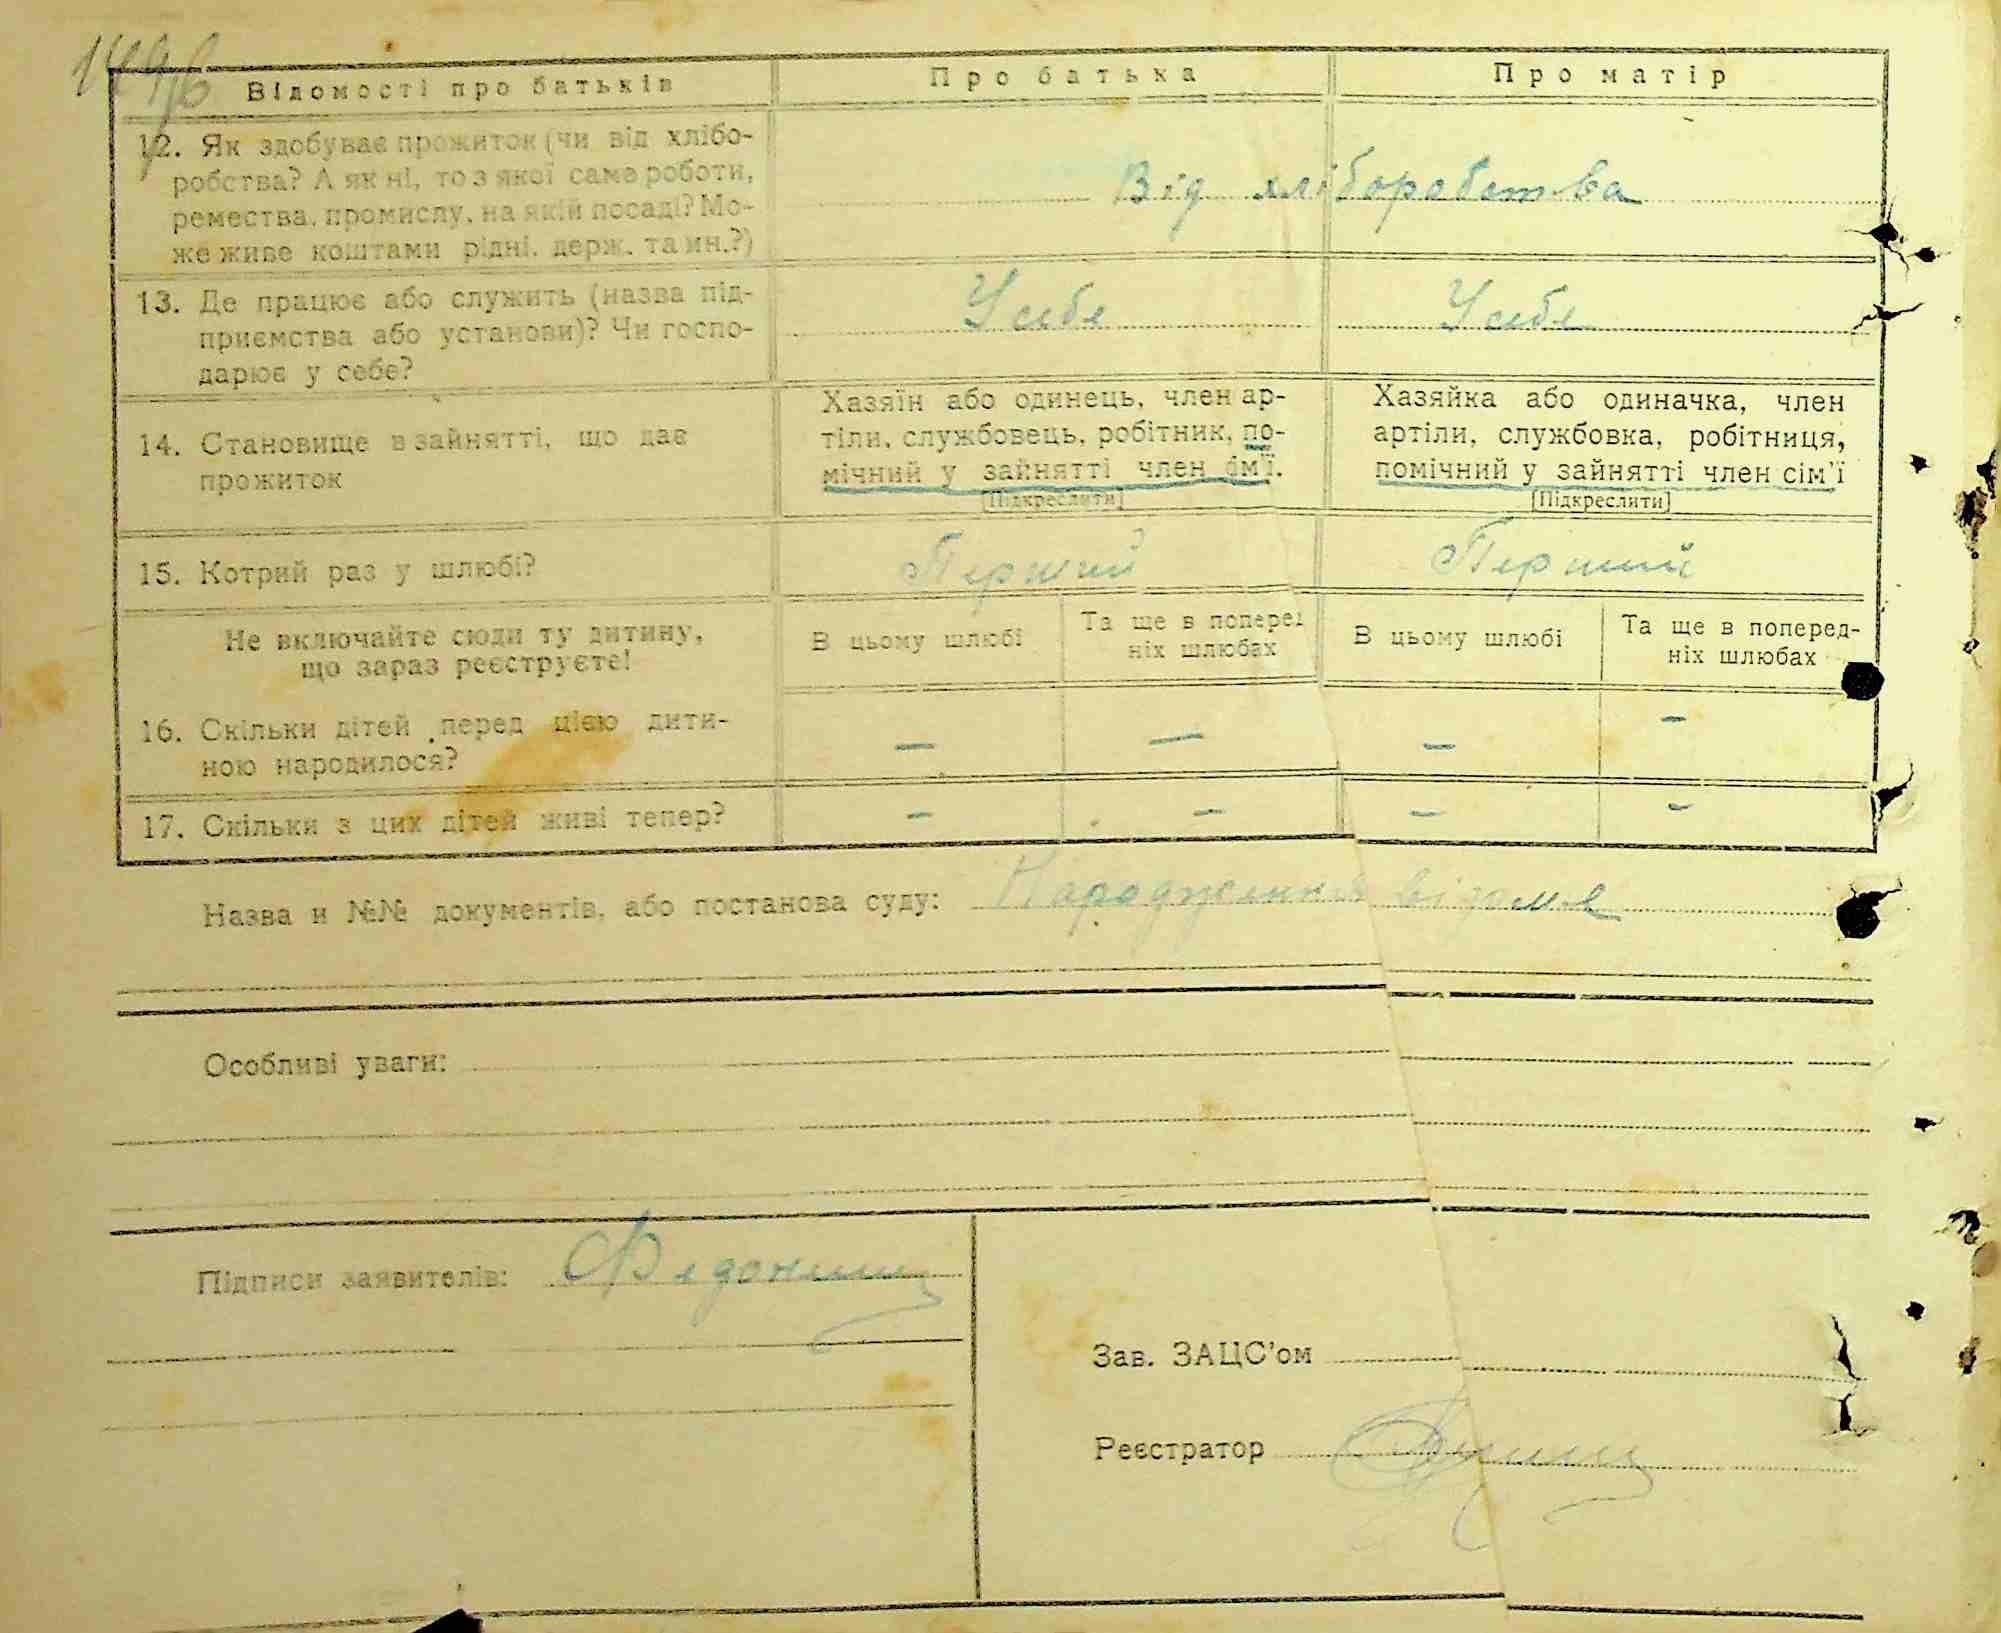 Відомості про батьків
Про батька
Про матір
12. Як здобуває прожиток (чи від хлібо-
робства? А як ні, то з якої саме роботи,
ремества, промислу, на якій посаді? Мо-
же живе коштами рідні, держ. та ин.?)
Від хліборобства
13. Де працює або служить (назва під-
приємства або установи)? Чи госпо-
дарює у себе?
У себе
У себе
14. Становище в зайнятті, що дає
прожиток
Хазяїн або одинець, член ар-
тіли, службовець, робітник, по-
мічний у зайнятті член сім'ї.
[Підкреслити]
Хазяйка або одиначка, член
артіли, службовка, робітниця,
помічний у зайнятті член сім'ї
[Підкреслити]
15. Котрий раз у шлюбі?
Перший
Перший
Не включайте сюди ту дитину,
що зараз реєструєте!
В цьому шлюбі
Та ще в поперед
ніх шлюбах
В цьому шлюбі
Та ще в поперед-
ніх шлюбах
16. Скільки дітей перед цією дити-
ною народилося?
— — — —
17. Скільки з цих дітей живі тепер?
— — — —
Назва и №№ документів, або постанова суду: Народження відоме
Особливі уваги:
Підписи заявителів:
Зав. ЗАЦС'ом
Реєстратор